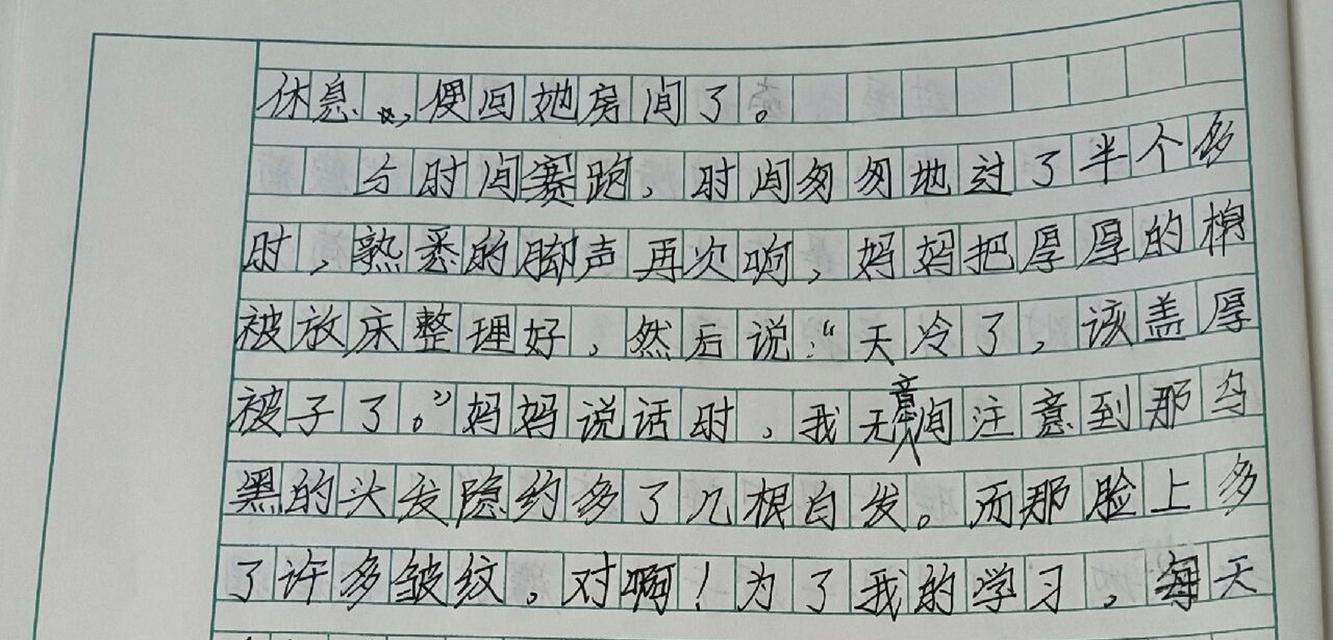 休息，便回她房间了。
与时间赛跑，时间匆匆地过了半个多
时，熟悉的脚声再次响，妈妈把厚厚的棉
被放床整理好，然后说：“天冷了，该盖厚
被子了。”妈妈说话时，我无意间注意到那乌
黑的头发隐约多了几根白发。而那脸上多
了许多皱纹，对啊！为了我的学习，每天